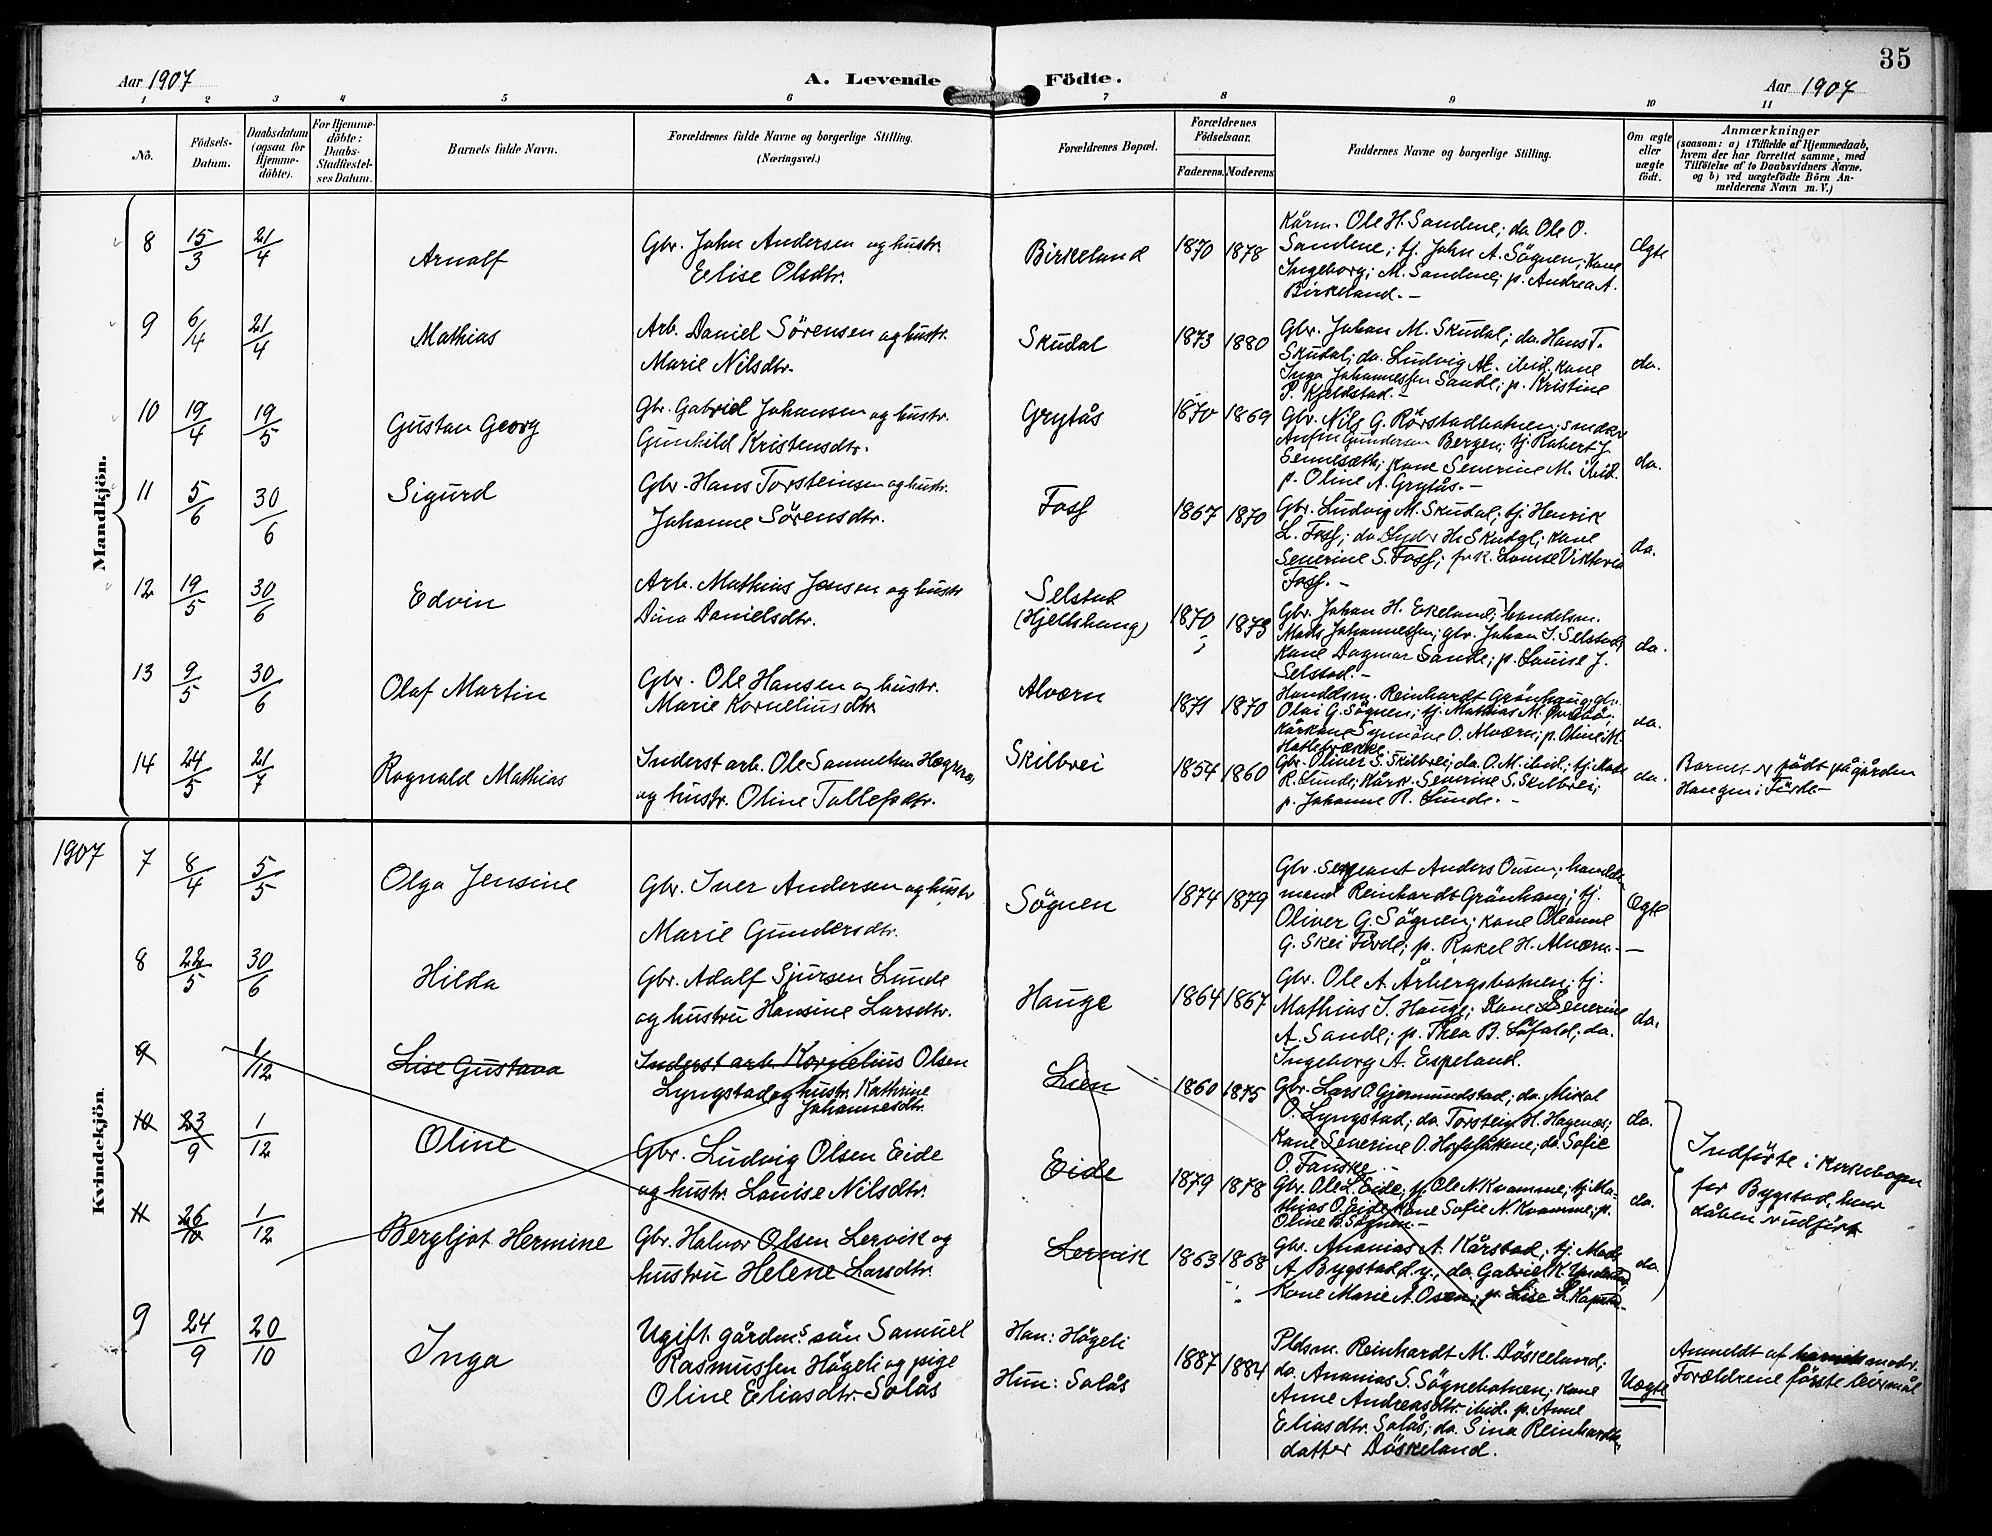 35
Aar 1907
A. Levende Födte.
Aar 1907
1 2 3 4 5 6 7 8 9 10 11
No.
Födsels-Datum.
Daabsdatum (ogsaa for Hjemme-döbte).
For Hjemme-döbte: Daabs-Stadfæstel-ses Datum.
Barnets fulde Navn.
Forældrenes fulde Navne og borgerlige Stilling.
(Næringsvei.)
Forældrenes Bopæl.
Forældrenes Födselsaar.
Faderens. Moderens.
Faddernes Navne og borgerlige Stilling.
Om ægte eller uægte födt.
Anmærkninger
(saasom: a) i Tilfælde af Hjemmedaab,
hvem der har forrettet samme, med
Tilföielse af to Daabsvidners Navne,
og b) ved uægtefödte Börn An-
melderens Navn m. V.)
Mandkjön.
8 15/3 21/4 Arnolf
Gbr. John Andersen og hustr.
Elise Olsdtr.
Birkeland 1870 1878
Kårm. Ole H. Sandene; do Ole O.
Sandene; tj. John A. Sögnen; Kone
Ingeborg; M. Sandene; p. Andrea A.
Birkeland.-
Ægte
9 6/4 21/4 Mathias
Arb. Daniel Sörensen og hustr.
Marie Nilsdtr.
Skudal 1873 1880
Gbr. Johan M. Skudal; do. Hans T.
Skudal; do. Ludvig M. ibid. Kone
Inga Johannessen Sande; p. Kristine
P. Kjeldstad.-
do.
10 19/4 19/5 Gustav Georg
Gbr. Gabriel Johansen og hustr.
Gunhild Kristensdtr.
Grytås 1870 1869
Gbr. Nils G. Rörstadbotnen;
Anfin Gundersen Bergen; tj. Robert J.
Kone Severine M. ibid.
p. Oline A. Grytås.-
do.
11 5/6 30/6 Sigurd
Gbr. Hans Torsteinsen og hustr.
Johanne Sörensdtr.
Foss 1867 1870
Gbr. Ludvig M. Skudal; tj. Henrik
L. Foss; do H. Skudal; Kone
Severine S. Foss; Louise Viktoria
Foss.-
do.
12 19/5 30/6 Edvin
Arb. Mathias Jensen og hustr
Dina Danielsdtr.
Selstad
(Hjellehaug) 1870 1873
Gbr. Johan H. Ekeland; handelsm.
Mads Johannessen; gbr. Johan J. Selstad;
Kone Dagmar Sande; p. Louise J.
Selstad.-
do.
13 9/5 30/6 Olaf Martin
Gbr. Ole Hansen og hustr.
Marie Korneliusdtr
Alværn 1871 1870
Handelsm. Reinhardt Grönhaug; gbr.
Olai G. Sögnen; tj. Mathias M.
Kårkone Synnöve O. Alværn; p. Oline M.
Hatlebrække.
do.
14 24/5 21/7 Ragnald Mathias
Inderst arb. Ole Samuelsen
og hustr. Oline Tollefsdtr.
Skilbrei 1854 1860
Gbr. Oliver S. Skilbrei; do. O. M. ibid; tj.
R. Lunde; Kårk. Severine S. Skilbrei;
p. Johanne R. Lunde.-
do.
Barnet er födt på gården
Haugen i Förde-
1907
Kvindekjön.
7 8/4 5/5 Olga Jensine
Gbr. Iver Andersen og hustr
Marie Gundersdtr.
Sögnen 1874 1879
Gbr. Sergeant Anders handels-
mand Reinhardt Grönhaug; tj.
Oliver G. Sögnen; Kone Oleanne
G. Skei Förde; p. Rakel H. Alværn.-
Ægte
8 22/5 30/6 Hilda
Gbr. Adolf Sjursen Lunde
og hustru Hansine Larsdtr.
Hauge 1864 1867
Gbr. Ole A. Årbergsbotnen; tj.
Mathias J. Hauge; Kone Severine
A. Sande; p. Thea B. do.
Ingeborg A. Espeland.
do.
9 1/12 Lise Gustava
Inderst arb. Kornelius Olsen
Lyngstad og hustr. Kathrine
Johannesdtr.
Lien 1860 1875
Gbr. Lars O. Gjermundstad; do. Mikal
O. Lyngstad; do. Torstein H. Hagenæs;
Kone Severine O. do. Sofie
O. Fauske.-
do.
10 23/9 1/12 Oline
Gbr. Ludvig Olsen Eide
og hustr. Louise Nilsdtr.
Eide 1879 1878
Gbr. Ole L. Eide; tj. Ole N. Kvamme; tj. Ma-
thias O. Eide; Kone Sofie N. Kvamme; p.
Oline Sögnen-
do.
11 26/10 1/12 Bergljot Hermine
Gbr. Halvor Olsen Lervik og
hustru Helene Larsdtr.
Lervik 1863 1868
Gbr. Ananias A. Kårstad; tj. Mads
A. Bygstad d.y., do. Gabriel K.
Kone Marie A. Osen; p. Lise L.
do.
Indförte i Kirkebogen
for Bygstad, hvor
dåben er udfört
9 24/9 20/10 Inga
Ugift gårdms sön Samuel
Rasmussen Högeli og pige
Oline Eliasdtr. Solås
Han: Högeli
Hun: Solås
1887 1884
Pldsm. Reinhardt M. Döskeland;
do. Ananias S. Sögnebotnen; Kone
Anne Andreasdtr. ibid. p. Anne
Eliasdtr. Solås; do. Sina Reinhardts-
datter Döskeland.
Uægte
Anmeldt af modr.
Forældrene förste leirmål